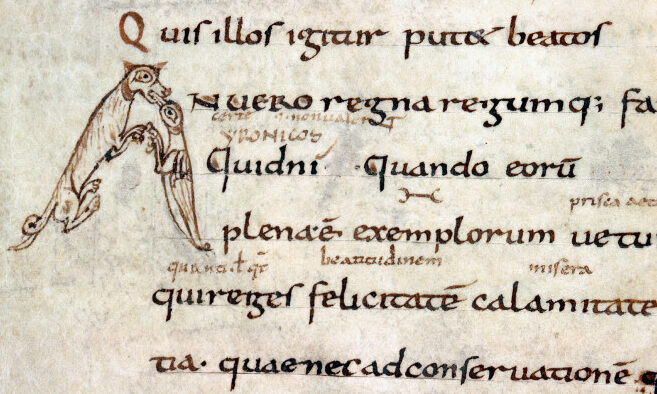 Quis illos igitur putet beatos
AN UERO regna regumq; fa
YRONICOS
Quidni Quando eorū
prisca
plena ē exemplorum uetu
beatitudinem misera
qui reges felicitatē calamitate
tia· quae nec ad conseruationē